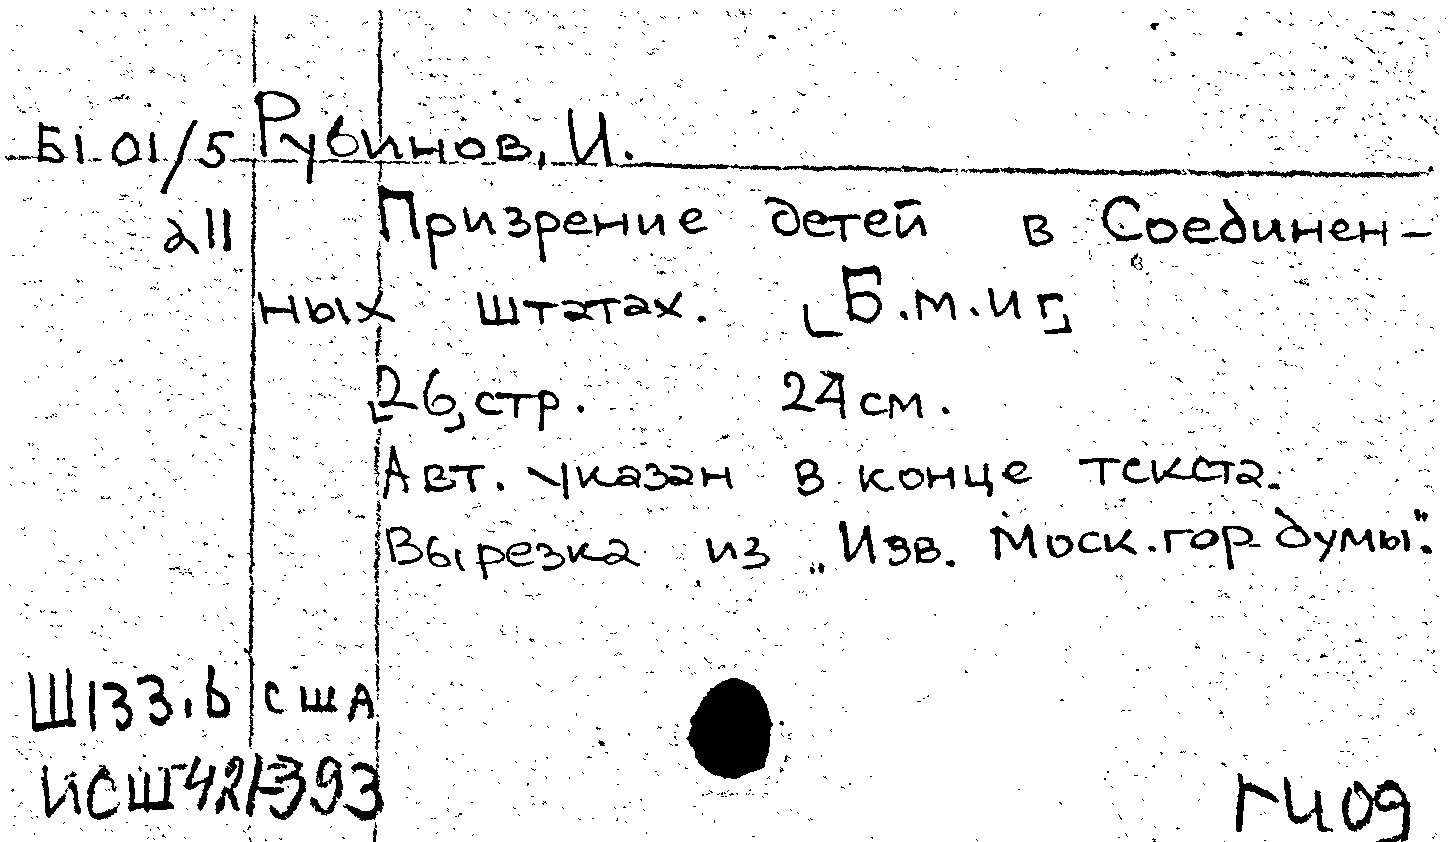 Б1 01/5 Рубинов, И.
211 Призрение детей в Соединен-
ных штатах. [Б.м.и г.]
[26] стр. 24 см.
Авт. указан в конце текста.
Вырезка из „Изв. Моск. гор. думы".
Ш133.Ь США
ИСШ421-393